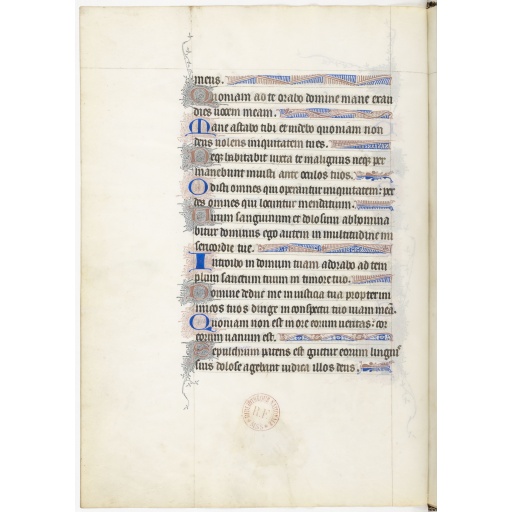 meus.
Quoniam ad te orabo domine mane exau
dies vocem meam.
Mane astabo tibi et videbo quoniam non
deus volens iniquitatem tu es.
Neq habitabit iuxta te malignus neq per
manebunt iniusti ante oculos tuos.
Odisti omnes qui operantur iniquitatem: per
des omnes qui locuntur mendatium.
Uirum sanguinum et dolosum abhomina
bitur dominus ego autem in multitudine mi
sericordie tue.
Introibo in domum tuam adorabo ad tem
plum sanctum tuum in timore tuo.
Domine deduc me in iusticia tua propter ini
micos tuos dirige in conspectu tuo viam meā.
Quoniam non est in ore eorum veritas: cor
eorum vanum est.
Sepulchrum patens est guttur eorum linguis
suis dolose agebant iudica illos deus.